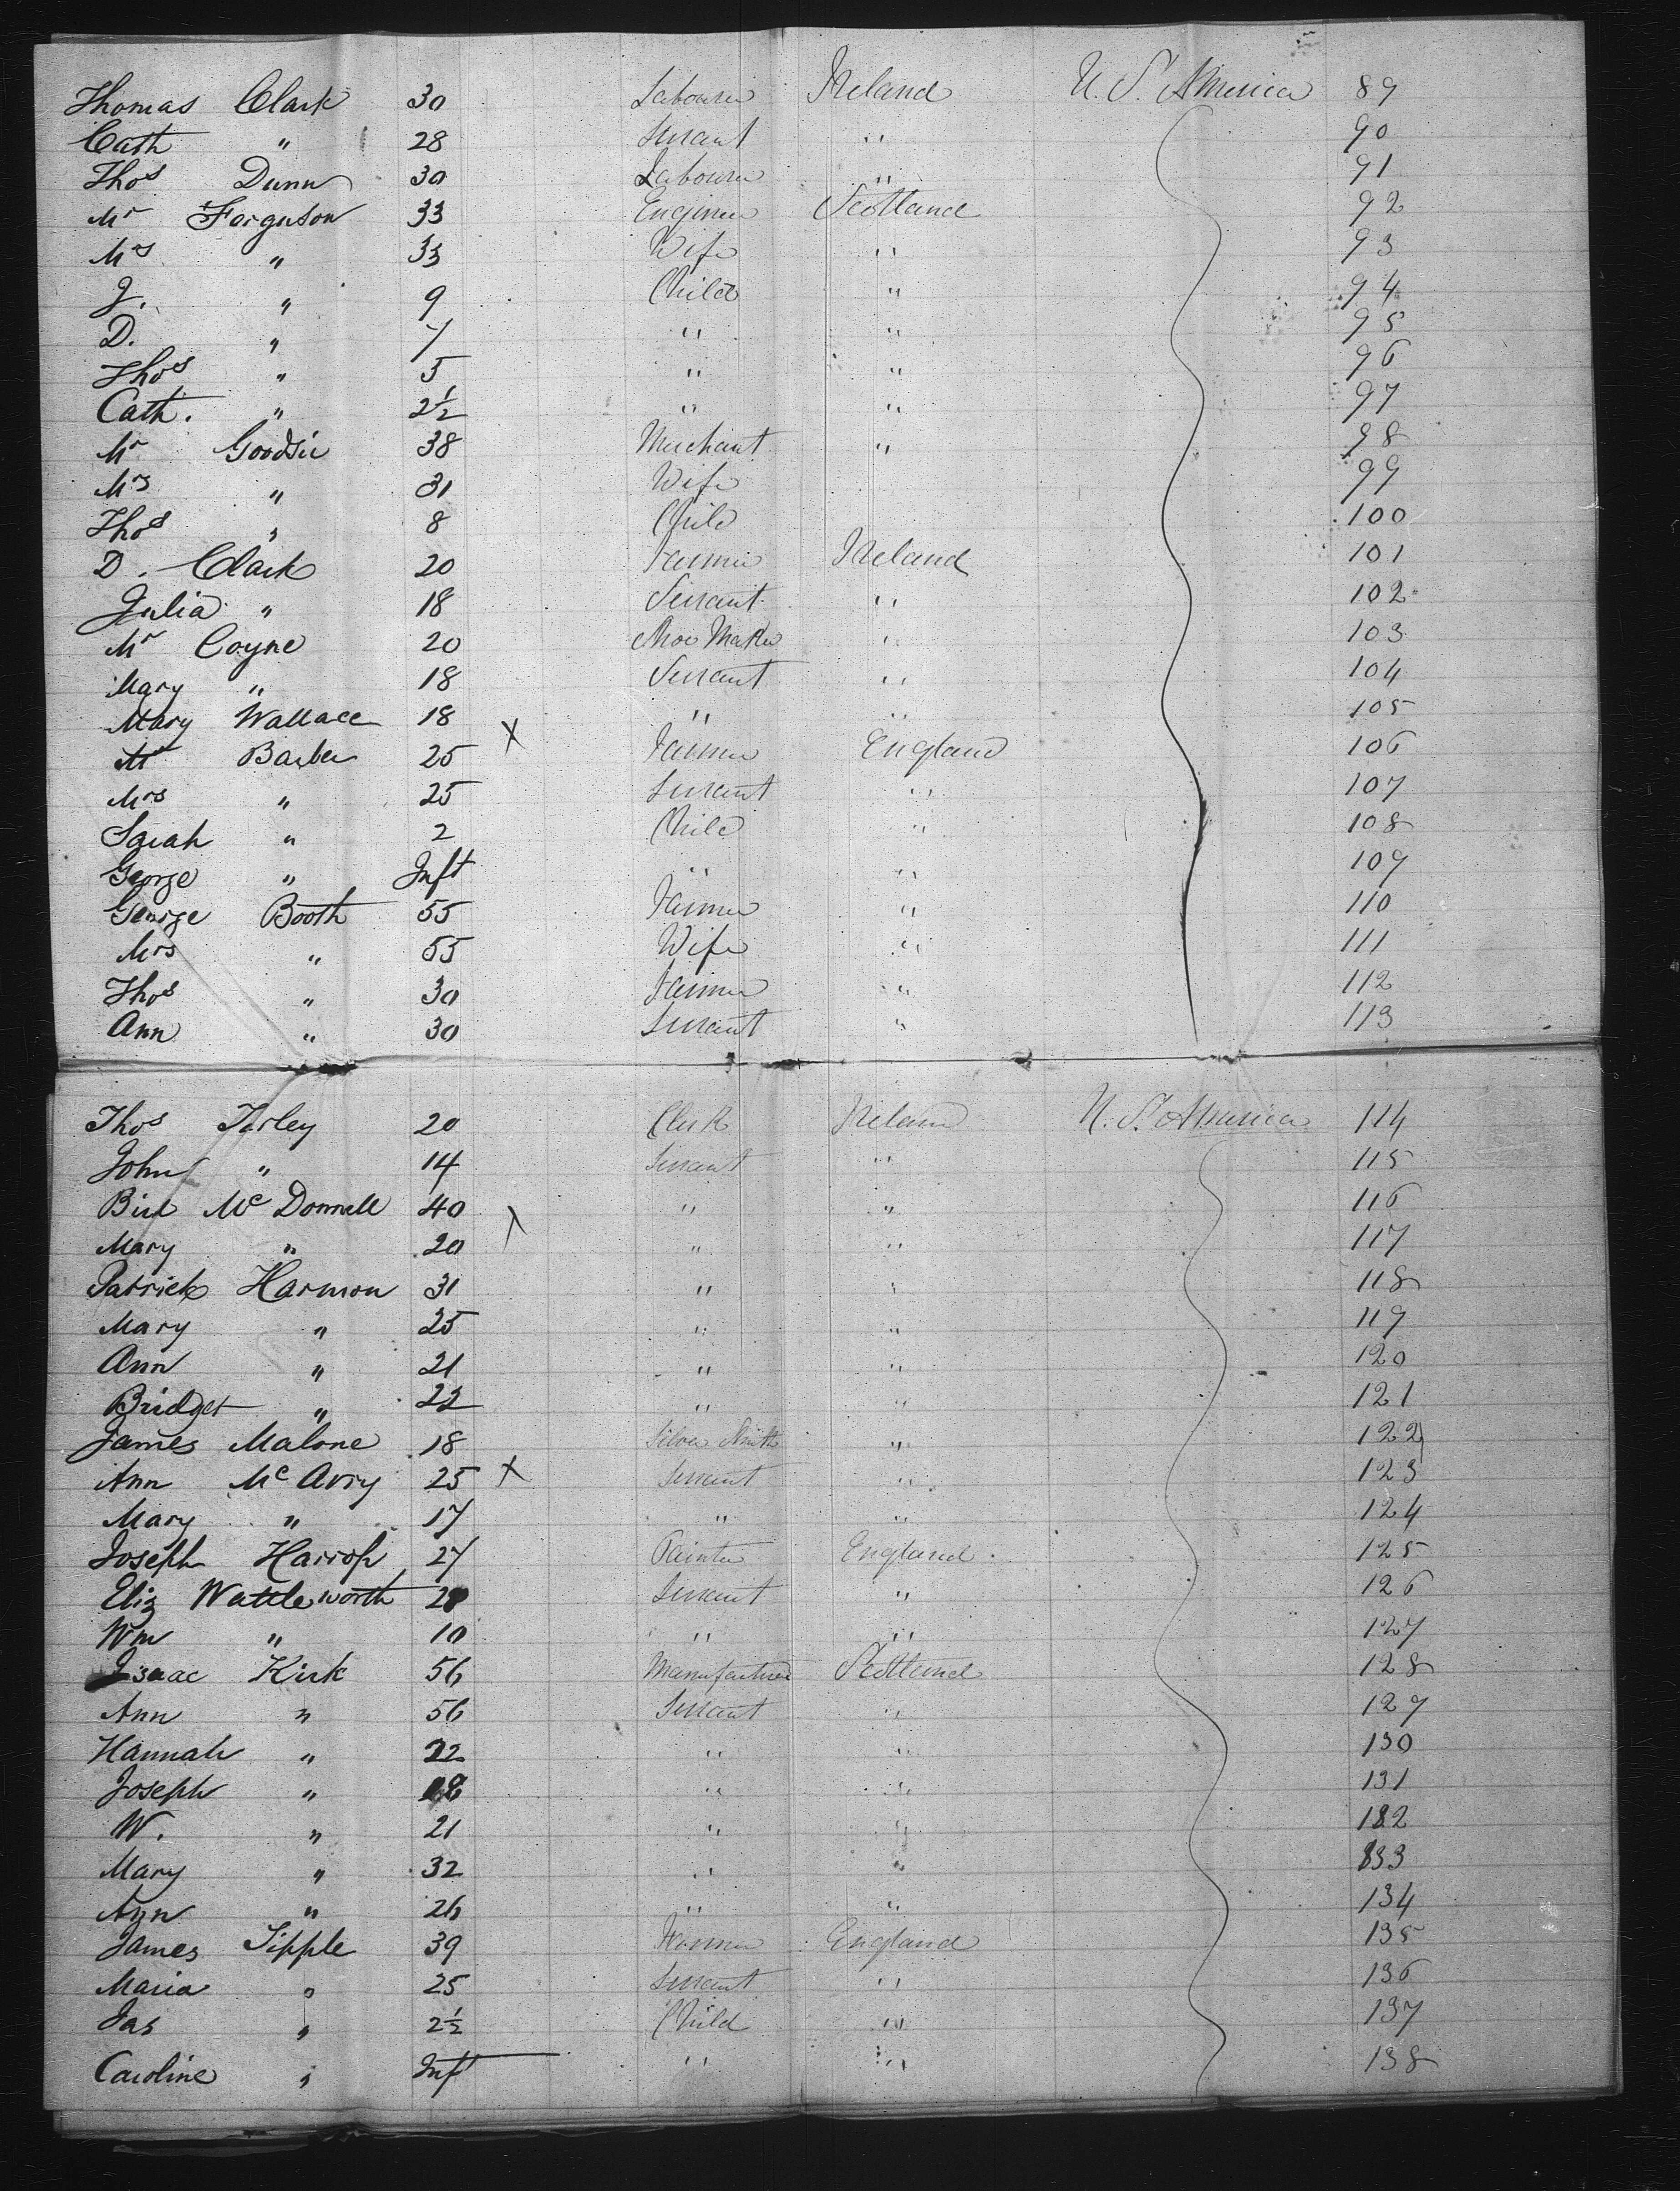 Thomas Clark 30 Labourer Ireland U. S. America 89
Cath " 28 Servant " 90
Thos Dunn 30 Labourer " 91
Mr Ferguson 33 Engineer Scotland 92
Mrs " 33 Wife " 93
J. " 9 Child " 94
D. " 7 " " 95
Thos " 5 " " 96
Cath. " 2½ " " 97
Mr Goodsir 38 Merchant " 98
Mrs " 31 Wife 99
Thos " 8 Child 100
D. Clark 20 Farmer Ireland 101
Julia " 18 Servant " 102
Mr Coyne 20 Shoe Maker " 103
Mary " 18 Servant " 104
Mary Wallace 18 " " 105
Mr Barber 25 X Farmer England 106
Mrs " 25 Servant " 107
Sarah " 2 Child " 108
George " Inft " " 109
George Booth 55 Farmer " 110
Mrs " 55 Wife " 111
Thos " 30 Farmer " 112
Ann " 30 Servant " 113
Thos 20 Clerk Ireland U. S. America 114
John " 14 Servant " 115
McDonnell 40 X " " 116
Mary " 20 " " 117
Patrick Harmon 31 " " 118
Mary " 25 " " 119
Ann " 21 " " 120
Bridget " 22 " " 121
James Malone 18 Silver Smith " 122
Ann McAvry 25 X Servant " 123
Mary " 17 " " 124
Joseph Harrop 27 Painter England 125
Eliz Wattleworth Servant " 126
Wm " 10 " " 127
Isaac Kirk 56 Manufacturer Scotland 128
Ann " 56 Servant " 129
Hannah " 22 " " 130
Joseph " " " 131
W. " 21 " " 132
Mary " 32 " " 133
Ann " 26 " " 134
James Tipple 39 Farmer England 135
Maria " 25 Servant " 136
Jas " 2½ Child " 137
Caroline " Inft " " 138